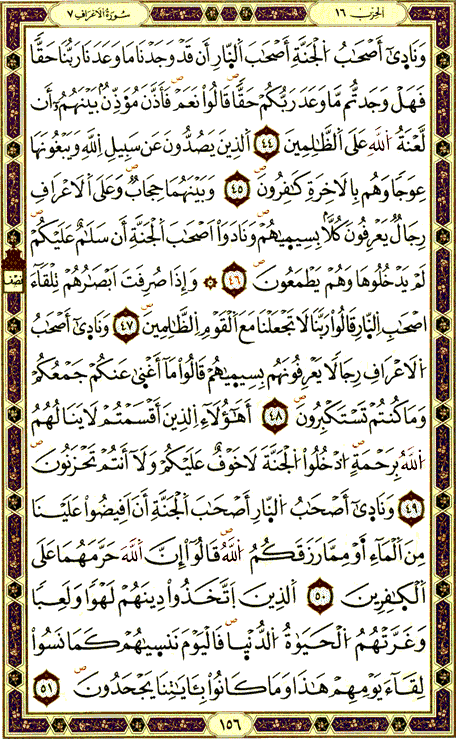 الحزب ١٦
سورة الأعراف ٧
وَنَادَىٰٓ أَصْحَٰبُ اُ۬لْجَنَّةِ أَصْحَٰبَ اَ۬لنّ۪ارِ أَن قَدْ وَجَدْنَا مَا وَعَدَنَا رَبُّنَا حَقّٗا
فَهَلْ وَجَدتُّم مَّا وَعَدَ رَبُّكُمْ حَقّٗا قَالُواْ نَعَمْ فَأَذَّنَ مُؤَذِّنُۢ بَيْنَهُمُۥٓ أَن
لَّعْنَةُ اُ۬للَّهِ عَلَى اَ۬لظَّٰلِمِينَ ٤٤ اَ۬لذِينَ يَصُدُّونَ عَن سَبِيلِ اِ۬للَّهِ وَيَبْغُونَهَا
عِوَجاٗ وَهُم بِالَاخِرَةِ كَٰفِرُونَ ٤٥ وَبَيْنَهُمَا حِجَابٞ وَعَلَى اَ۬لَاعْرَافِ
رِجَالٞ يَعْرِفُونَ كُلَّاۢ بِسِيم۪يٰهُمْ وَنَادَوَاْ اَصْحَٰبَ اَ۬لْجَنَّةِ أَن سَلَٰمٌ عَلَيْكُمْ
لَمْ يَدْخُلُوهَا وَهُمْ يَطْمَعُونَ ٤٦ ۞ وَإِذَا صُرِفَتَ اَبْصَٰرُهُمْ تِلْقَآءَ
اَصْحَٰبِ اِ۬لنّ۪ارِ قَالُواْ رَبَّنَا لَا تَجْعَلْنَا مَعَ اَ۬لْقَوْمِ اِ۬لظَّٰلِمِينَ ٤٧ وَنَادَىٰٓ أَصْحَٰبُ
اُ۬لَاعْرَافِ رِجَالاٗ يَعْرِفُونَهُم بِسِيم۪يٰهُمْ قَالُواْ مَآ أَغْن۪يٰ عَنكُمْ جَمْعُكُمْ
وَمَا كُنتُمْ تَسْتَكْبِرُونَ ٤٨ أَهَٰٓؤُلَآءِ اِ۬لذِينَ أَقْسَمْتُمْ لَا يَنَالُهُمُ
اُ۬للَّهُ بِرَحْمَةٍ اُ۟دْخُلُواْ اُ۬لْجَنَّةَ لَا خَوْفٌ عَلَيْكُمْ وَلَآ أَنتُمْ تَحْزَنُونَ
٤٩ وَنَادَىٰٓ أَصْحَٰبُ اُ۬لنّ۪ارِ أَصْحَٰبَ اَ۬لْجَنَّةِ أَنَ اَفِيضُواْ عَلَيْنَا
مِنَ اَ۬لْمَآءِ اَوْ مِمَّا رَزَقَكُمُ اُ۬للَّهُ قَالُوٓاْ إِنَّ اَ۬للَّهَ حَرَّمَهُمَا عَلَى
اَ۬لْكٰ۪فِرِينَ ٥٠ اَ۬لذِينَ اَ۪تَّخَذُواْ دِينَهُمْ لَهْواٗ وَلَعِباٗ
وَغَرَّتْهُمُ اُ۬لْحَيَوٰةُ اُ۬لدُّنْي۪ا فَالْيَوْمَ نَنس۪يٰهُمْ كَمَا نَسُواْ
لِقَآءَ يَوْمِهِمْ هَٰذَا وَمَا كَانُواْ بِـَٔايَٰتِنَا يَجْحَدُونَ ٥١
نصف
١٥٦